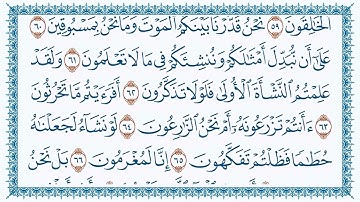 ٱلْخَٰلِقُونَ ٥٩ نَحْنُ قَدَّرْنَا بَيْنَكُمُ ٱلْمَوْتَ وَمَا نَحْنُ بِمَسْبُوقِينَ ٦٠
عَلَىٰٓ أَن نُّبَدِّلَ أَمْثَٰلَكُمْ وَنُنشِئَكُمْ فِى مَا لَا تَعْلَمُونَ ٦١ وَلَقَدْ
عَلِمْتُمُ ٱلنَّشْأَةَ ٱلْأُولَىٰ فَلَوْلَا تَذَكَّرُونَ ٦٢ أَفَرَءَيْتُم مَّا تَحْرُثُونَ
٦٣ ءَأَنتُمْ تَزْرَعُونَهُۥٓ أَمْ نَحْنُ ٱلزَّٰرِعُونَ ٦٤ لَوْ نَشَآءُ لَجَعَلْنَٰهُ
حُطَٰمًا فَظَلْتُمْ تَفَكَّهُونَ ٦٥ إِنَّا لَمُغْرَمُونَ ٦٦ بَلْ نَحْنُ